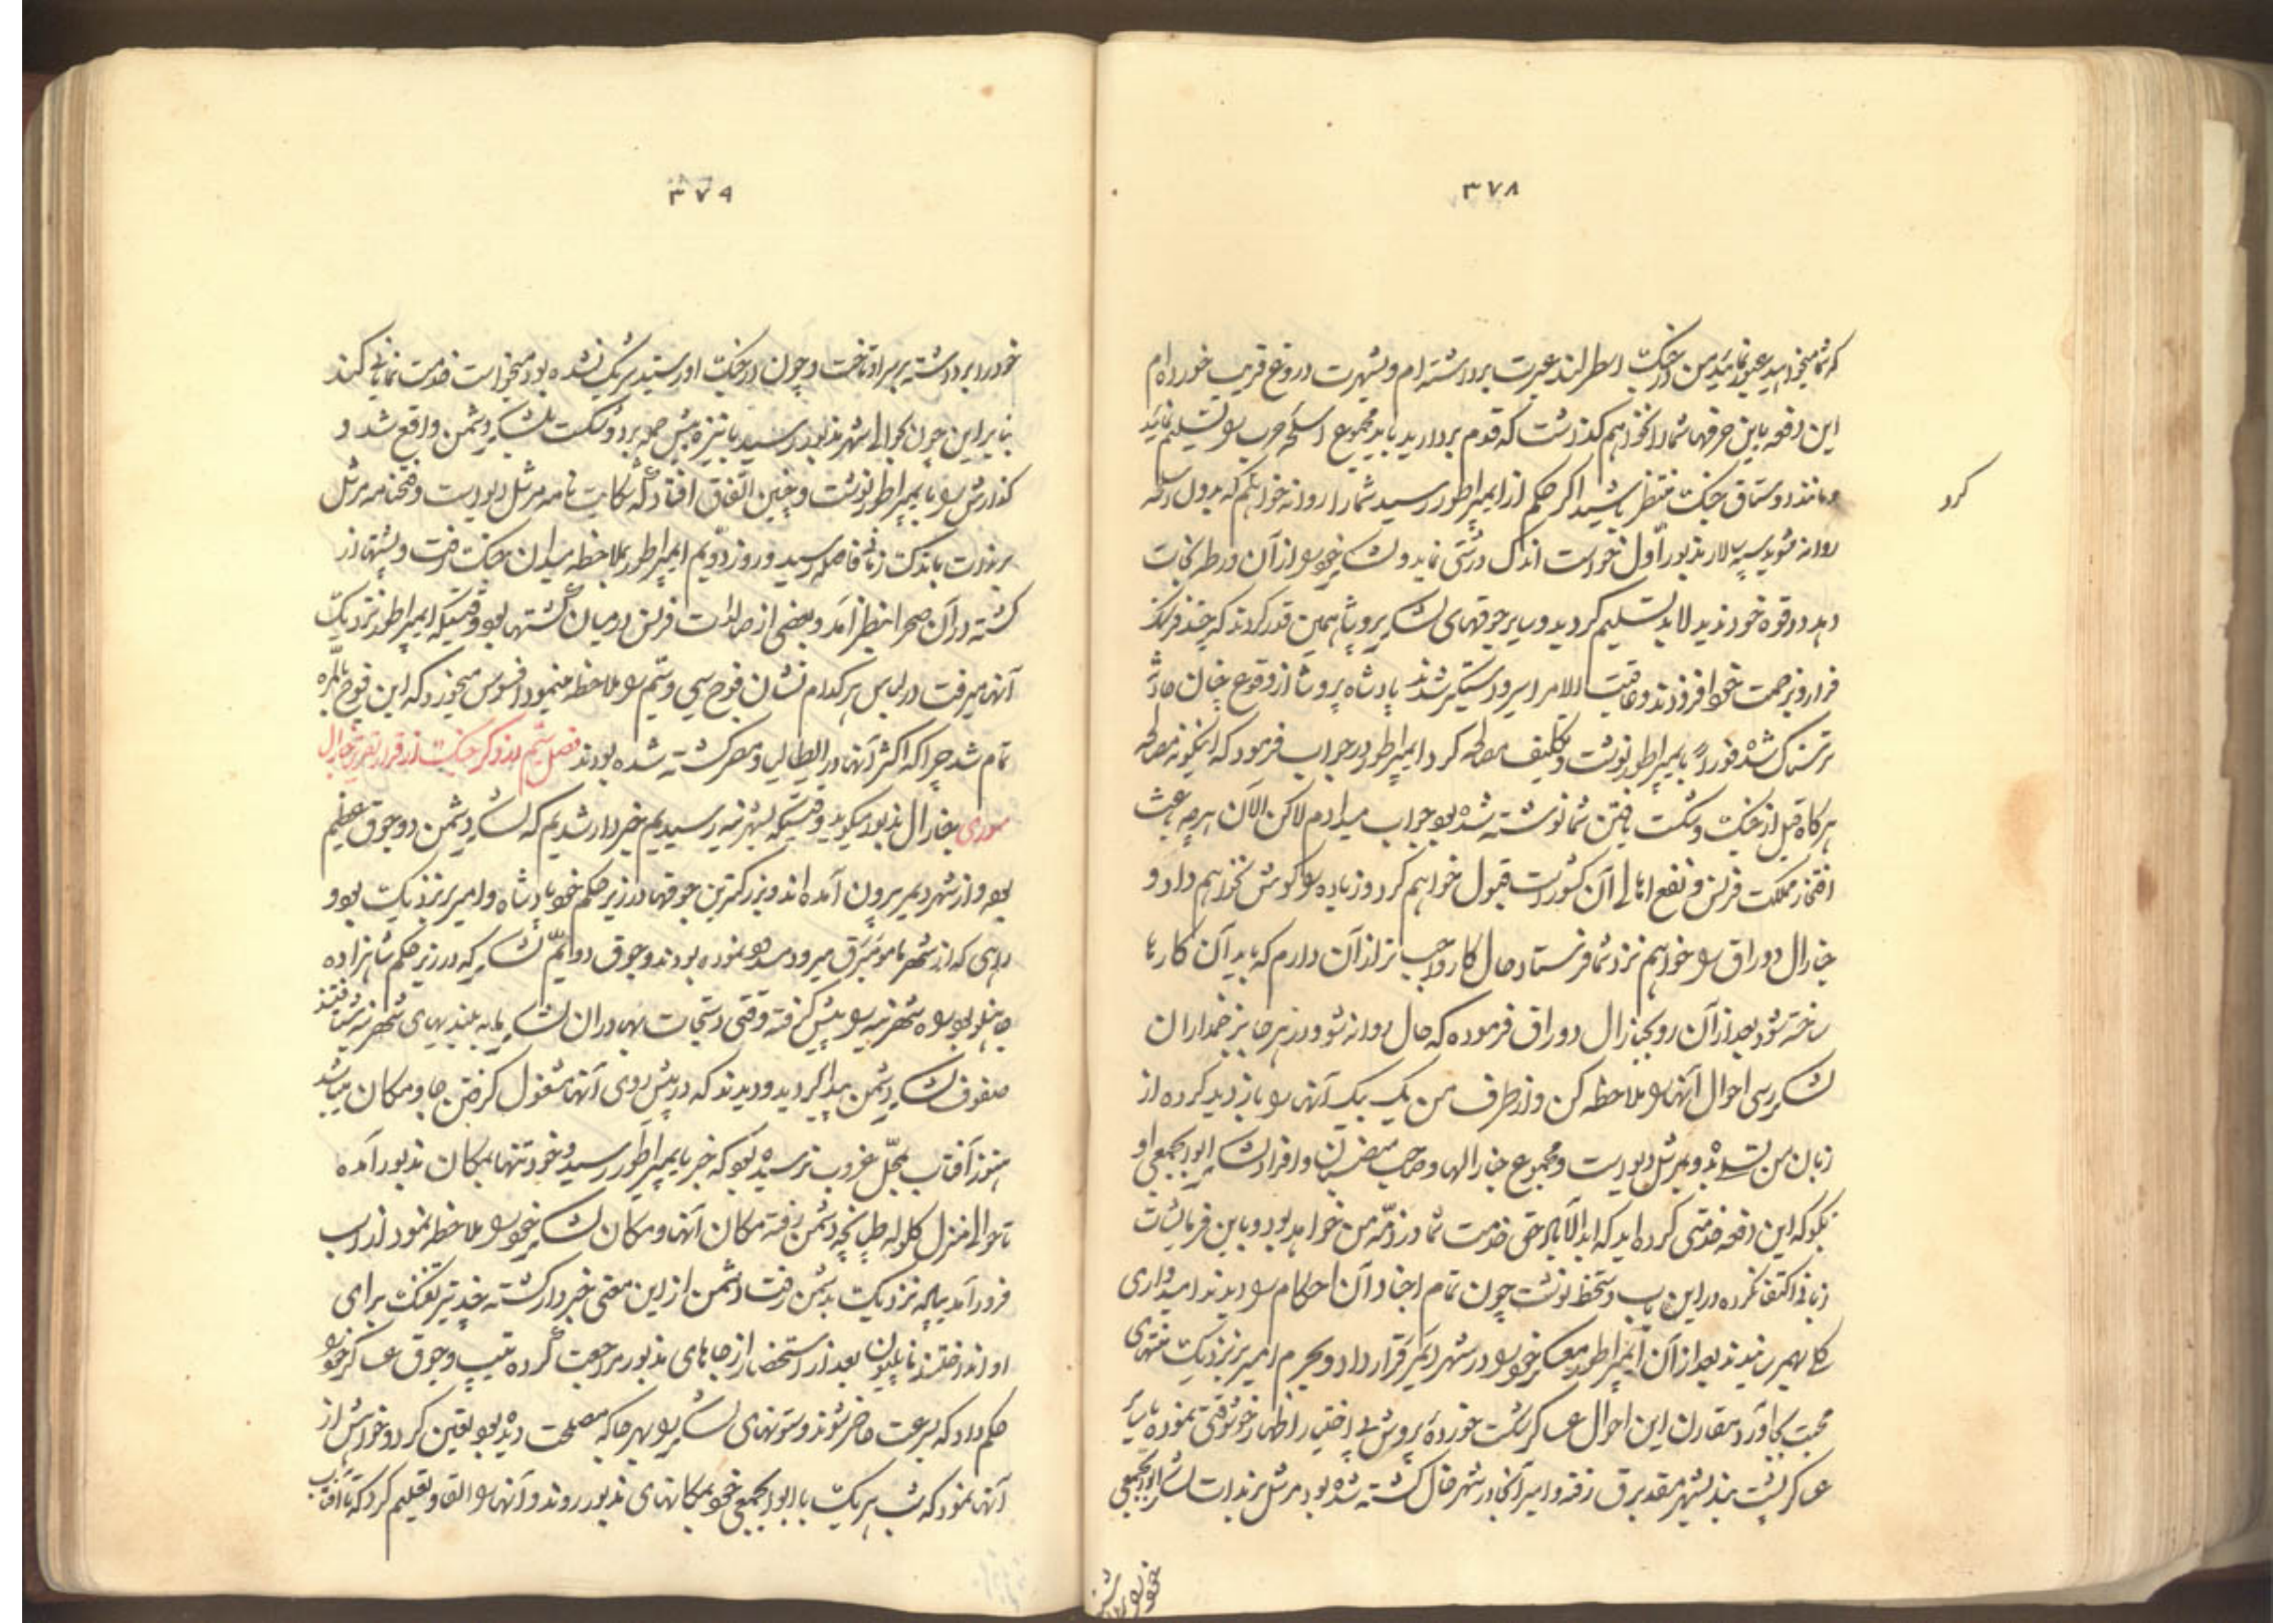 ۳۷۸
که شما میخواهید عبور نمائید من در جنک اسطرلند عبرت برداشته‌ام و بشهرت دروغ فریب خورده‌ام
این دفعه باین حرفها شما را نخواهم گذاشت که قدم بردارید باید مجموع اسلحه حرب را تسلیم نمائید
و مانند اوستاق جنک منتظر باشید اگر حکم از ایمپراطور رسید شما را روانه خواهم کرد که بدون اسلحه
روانه شوید سپه سالار مذبور اول خواست اندک درشتی نماید و لشکر خود را از آن ورطه نجات
دهد در قوه خود ندید لابد تسلیم گردید و سایر جوقهای لشکر پروشا همین قدر کردند که چند فرسنگ
فرار و بزحمت خود افزودند و عاقبت الامر اسیر و دستگیر شدند پادشاه پروشا از وقوع چنان حادثه
ترسناک شده فوراً بایمپراطور نوشت و تکلیف مصالحه کرد ایمپراطور در جواب فرمود که اینگونه مصالحه
هر کاه قبل از جنک و شکست یافتن شما نوشته شده بود جواب میدادم لاکن الآن هر چه باعث
افتخار مملکت فرنس و نفع اهالی آن کشور است قبول خواهم کرد و زیاده را گوش نخواهم داد و
جنارال دوراق را خواهم نزد شما فرستاد حال کار واجب‌تر از آن دارم که باید آن کارها
ساخته شود بعد از آن رو بجنارال دوراق فرموده که حال روانه شو و در هر جا بزخمداران
لشکر رسی احوال آنها را ملاحظه کن و از طرف من یک یک آنها را بازدید کرده از
زبان من تسلی بده و بمرشل دیواست و مجموع جنارالها و صاحب منصبان و افراد لشکر ابوابجمعی او
بگو که این دفعه خدمتی کرده‌اید که ابدالآباد حق خدمت شما در ذمه من خواهد بود و باین فرمایشات
زبانی اکتفا نکرده در این باب دستخط نوشت چون تمام اجناد آن احکام را دیدند امیدواری
کلی بهم رسانیدند بعد از آن ایمپراطور معسکر خود را در شهر دیمیر قرار داد و بحرم امیر بزنزدیک منتهای
محبت بجا آورد مقارن این احوال عساکر شکست خورده پروش بی اختیار اظهار خوشوقتی نموده با سایر
عساکر پشت بند بشهر مقدبرق رفته و امیر آنجا در شهر خال کشته شده بود مرشل برنداث لشکر ابوابجمعی
کرد
خود را برداشته
۳۷۹
خود را برداشته بر سر او تاخت و چون در جنک اورستید شریک نشده بود میخواست خدمت نمایانی کند
بنابر این چون بحوالی شهر مذبور رسید با نیزه پیش حمله برد و شکست بلشکر دشمن واقع شد و
گذارش را بایمپراطور نوشت و چنین اتفاق افتاد که شکایت نامه مرشل دیواست و فتحنامه مرشل
برنداث باندک زمانی فاصله رسید و روز دویم ایمپراطور بملاحظه میدان جنک رفت و پشتها از
کشته در آن صحرا بنظر آمد و بعضی از صالدات فرنس درمیان کشتها بود وقتیکه ایمپراطور نزدیک
آنها میرفت در لباس هر کدام نشان فوج سی و ششم را ملاحظه مینمود افسوس میخورد که این فوج بالمره
تمام شد چرا که اکثر آنها در ایطالیا و مصر کشته شده بودند فصل ششم در ذکر جنک از قرار تقریر جنارال
سوری جنارال مذبور میگوید وقتیکه بشهر نیه رسیدیم خبردار شدیم که لشکر دشمن دو جوق عظیم
بوده و از شهر دیمیر بیرون آمده‌اند و بزرکترین جوقها در زیر حکم خود پادشاه و امیر بزنزدیک بود و
راهی که از شهر نامومبرق میرود سد نموده بودند و جوق دوایم لشکر که در زیر حکم شاهزاده
هاهنلو بود راه شهر نیه را پیش گرفته وقتی دستجات بهادران لشکر ما به بلندیهای شهر نیه شتافتند
صفوف لشکر دشمن پیدا گردید و دیدند که در پیش روی آنها مشغول گرفتن جا و مکان میباشند
هنوز آفتاب بمحل غروب نرسیده بود که خبر بایمپراطور رسید و خود تنها بمکان مذبور آمده
تا حوالی منزل کلوله طپانچه دشمن رفته مکان آنها و مکان لشکر خود را ملاحظه نمود از اسب
فرود آمد پیاده نزدیک بدشمن رفت دشمن از این معنی خبردار کشته چند تیر تفنک برای
او انداختند ناپلیون بعد از استحضار از جاهای مذبور مراجعت کرده تیپ و جوق عساکر خود را
حکم داد که بسرعت حاضر شوند و ستونهای لشکر را بهر جا که مصلحت دیده بود تعین کرد و خواهش از
آنها نمود که شب هر یک با ابوابجمعی خود بمکانهای مذبور روند و آنها را القا و تعلیم کرد که تا آفتاب